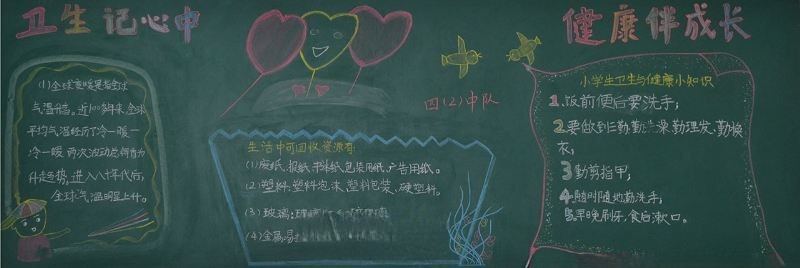 卫生记心中
健康伴成长
四(2)中队
(1)全球变暖是指全球
气温升高。近100多年来,全球
平均气温经历了冷一暖一
冷一暖两次波动总的看为
升趋势,进入八十年代后,
全球气温明显上升。
生活中可回收资源有:
(1)废纸:报纸、书本纸、包装用纸、广告用纸。
(2)塑料:塑料泡沫、塑料包装、硬塑料。
(3)玻璃:
(4)金属:易
小学生卫生与健康小知识
1.饭前便后要洗手;
2.要做到三勤:勤洗澡、勤理发、勤换
衣;
3.勤剪指甲;
4.随时随地勤洗手;
5.早晚刷牙,食后漱口。